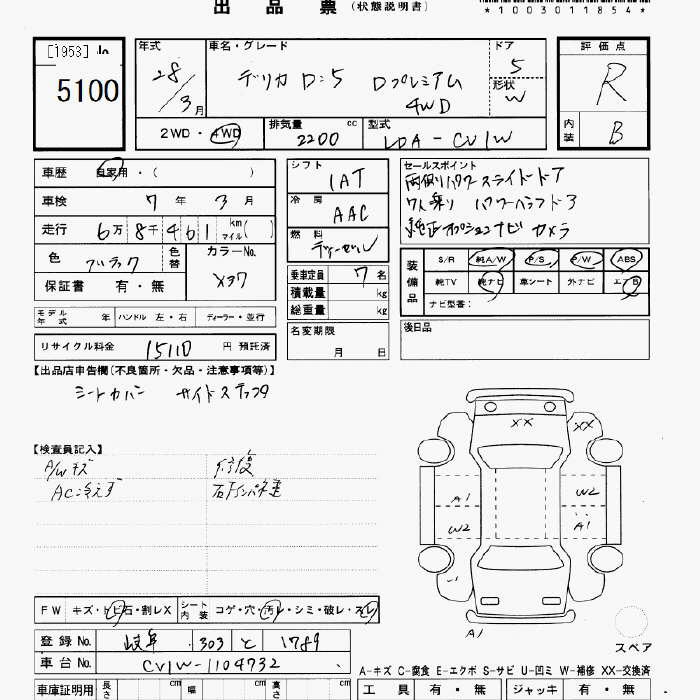 出品票 (状態説明書)
*1003011854*
[1953]
5100
年式 28/3月
車名・グレード デリカ D:5 Dプレミアム 4WD
ドア 5
形状 W
評価点 R
内装 B
2WD・4WD
排気量 2200 cc
型式 LDA-CV1W
車歴 自家用・( )
車検 7年 3月
走行 6万8千461 km マイル( )
色 ブラック 色替 カラーNo. X37
保証書 有・無
シフト 1AT
冷房 AAC
燃料 ディーゼル
乗車定員 7名
積載量 kg
総重量 kg
名変期限 月 日
セールスポイント
両側パワースライドドア
7人乗り パワーバックドア
純正オプションナビ カメラ
装備品 S/R 純A/W P/S P/W ABS
純TV 純ナビ 車シート 外ナビ エアB
ナビ型番:
後日品
モデル年式 年 ハンドル 左・右 ディーラー・並行
リサイクル料金 15110 円 預託済
【出品店申告欄(不良箇所・欠品・注意事項等)】
シートカバー サイドステップ
【検査員記入】
A/Wキズ 修復
AC冷えず 右Fインパネ歪
XX XX
A1 W2
W2 A1
A1
スペア
FW キズ・トビ石・割レX シート内装 コゲ・穴・汚レ・シミ・破レ・スレ
登録No. 岐阜 303 と 1789
車台No. CV1W-1104732
A-キズ C-腐食 E-エクボ S-サビ U-凹ミ W-補修 XX-交換済
車庫証明用 長さ cm 幅 cm 高さ cm
工具 有・無 ジャッキ 有・無